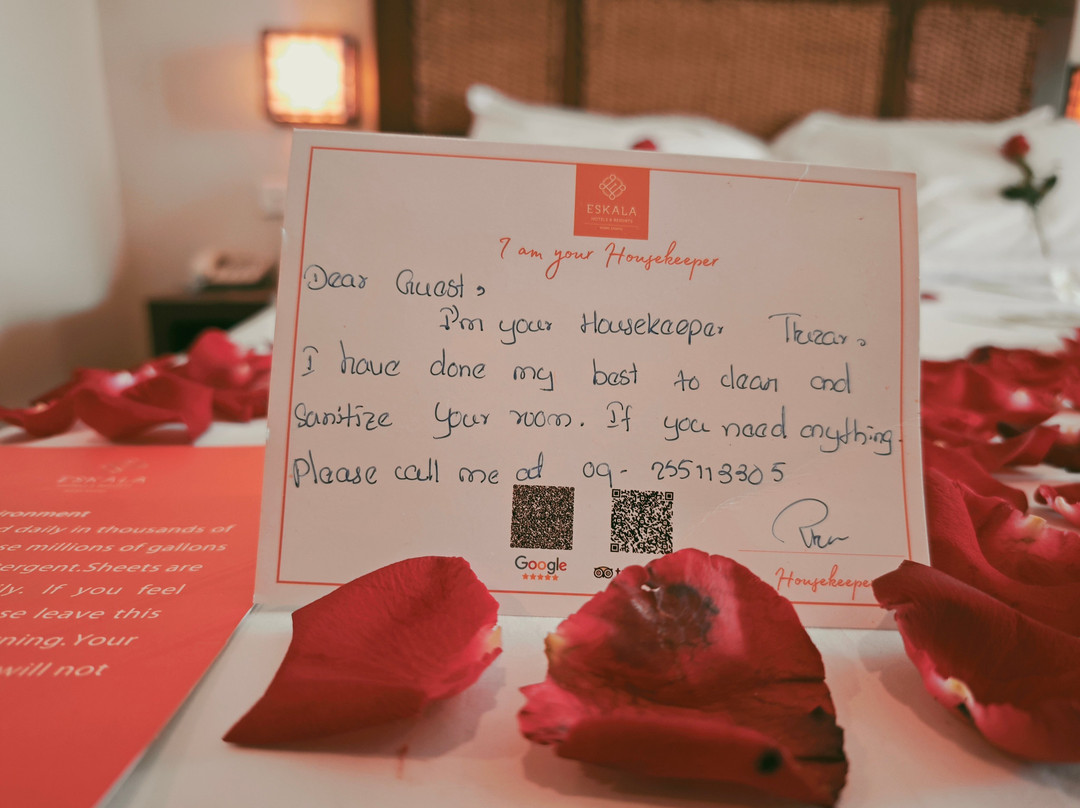 ESKALA
HOTELS & RESORTS
I am your Housekeeper
Dear Guest,
I'm your Housekeeper Thuzar.
I have done my best to clean and
Sanitize your room. If you need anything.
Please call me at 09- 255113305
Google
Housekeeper
ESKALA
ironment
d daily in thousands of
se millions of gallons
tergent.Sheets are
ly. If you feel
se leave this
ning.Your
will not